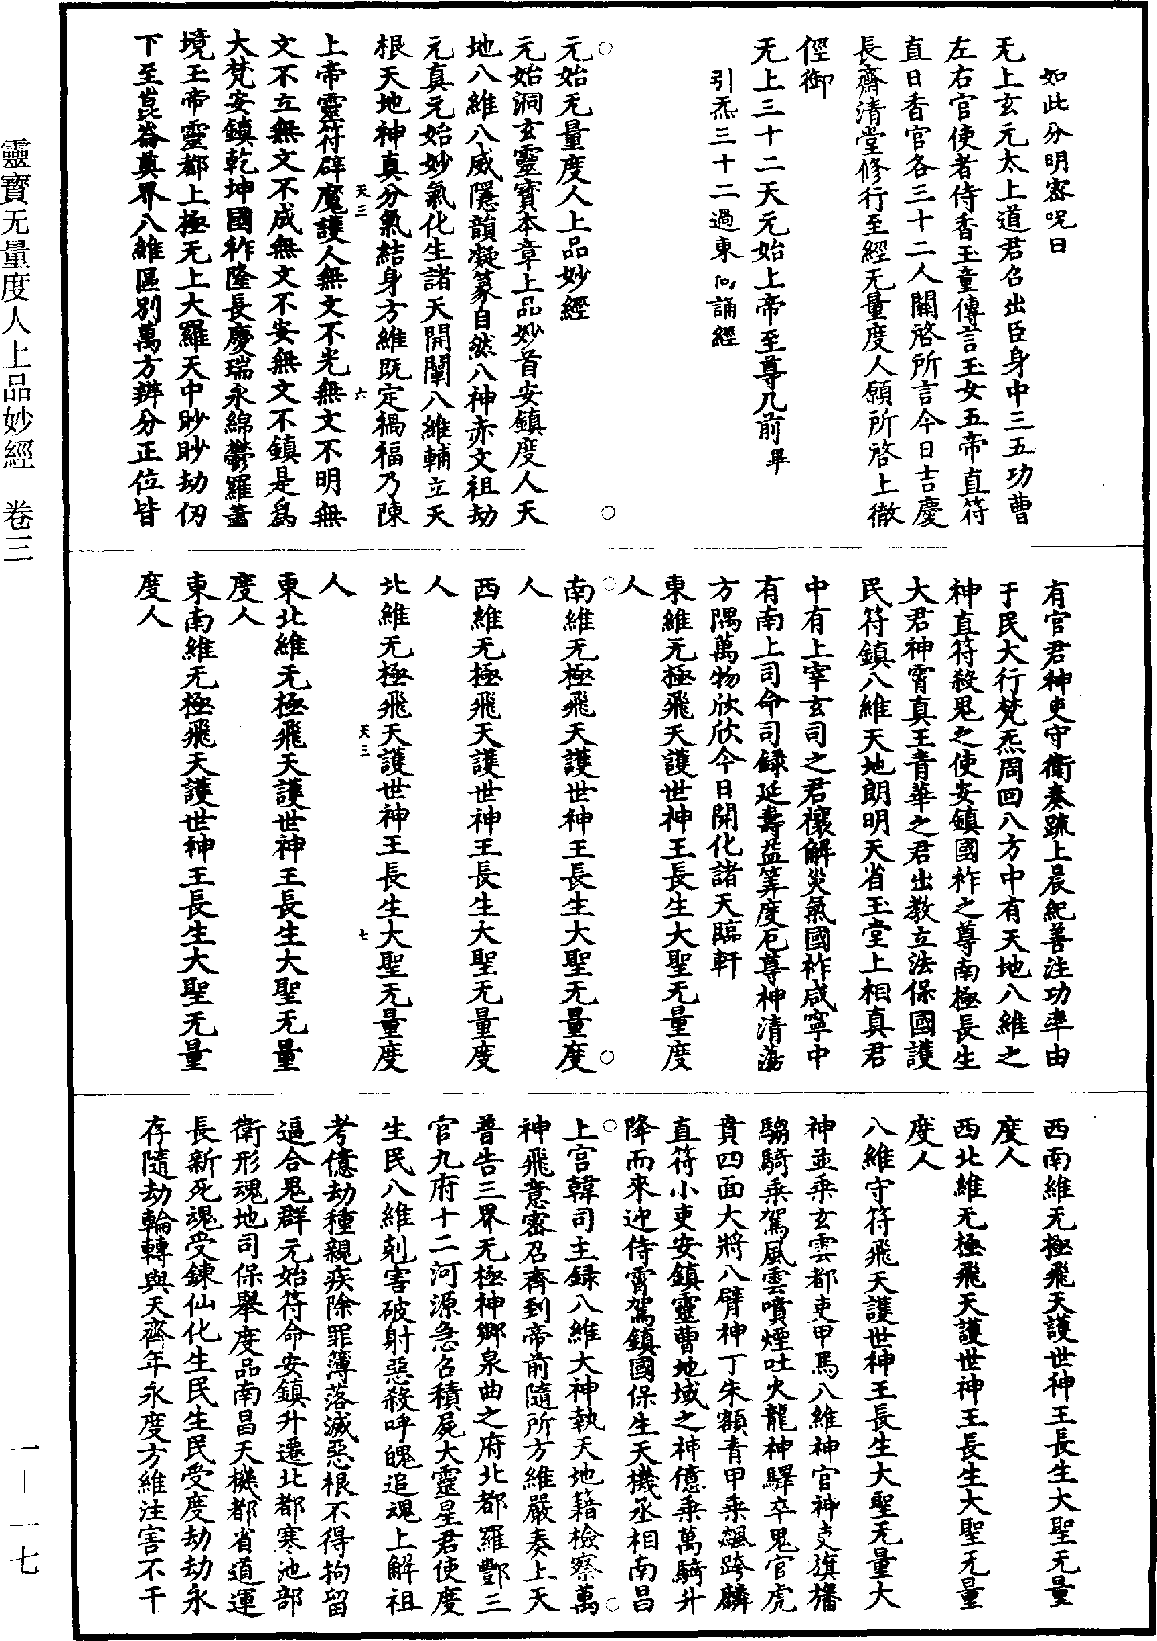 靈寶无量度人上品妙經　卷三
一—一七
如此分明密呪曰
无上玄元太上道君召出臣身中三五功曹
左右官使者侍香玉童傳言玉女五帝直符
直日香官各三十二人關啓所言今日吉慶
長齋清堂修行至經无量度人願所啓上徹
徑御
无上三十二天元始上帝至尊几前畢
引炁三十二過東向誦經
元始无量度人上品妙經
元始洞玄靈寶本章上品妙首安鎮度人天
地八維八威隱韻凝篆自然八神赤文祖劫
元真元始妙氣化生諸天開闡八維輔立天
根天地神真分氣結身方維既定禍福乃陳
天三　六
上帝靈符辟魔護人無文不光無文不明無
文不立無文不成無文不安無文不鎮是爲
大梵安鎮乾坤國祚隆長慶瑞永綿鬱羅蕭
境玉帝靈都上極无上大羅天中眇眇劫仞
下至崑崙莫界八維區別萬方辨分正位皆
有官君神吏守衛奏䟽上晨紀善注功率由
于民大行梵炁周回八方中有天地八維之
神直符殺鬼之使安鎮國祚之尊南極長生
大君神霄真王青華之君出教立法保國護
民符鎮八維天地朗明天省玉堂上相真君
中有上宰玄司之君禳解災氣國祚咸寧中
有南上司命司録延壽益筭度厄尊神清蕩
方隅萬物欣欣今日開化諸天臨軒
東維无極飛天護世神王長生大聖无量度
人
南維无極飛天護世神王長生大聖无量度
人
西維无極飛天護世神王長生大聖无量度
人
北維无極飛天護世神王長生大聖无量度
天三　七
人
東北維无極飛天護世神王長生大聖无量
度人
東南維无極飛天護世神王長生大聖无量
度人
西南維无極飛天護世神王長生大聖无量
度人
西北維无極飛天護世神王長生大聖无量
度人
八維守符飛天護世神王長生大聖无量大
神並乘玄雲都吏甲馬八維神官神吏旗旛
驺騎乘駕風雲噴煙吐火龍神驛卒鬼官虎
賁四面大將八臂神丁朱額青甲乘飈跨麟
直符小吏安鎮靈曹地域之神億乘萬騎升
降而來迎侍霄駕鎮國保生天機丞相南昌
上宫韓司主録八維大神執天地籍檢察萬
神飛意密召齊到帝前隨所方維嚴奏上天
普告三界无極神鄉泉曲之府北都羅酆三
官九府十二河源急召積屍大靈星君使度
生民八維剋害破射惡殺呼魄追魂上解祖
考億劫種親疾除罪簿落滅惡根不得拘留
逼合鬼群元始符命安鎮升遷北都寒池部
衛形魂地司保舉度品南昌天機都省道運
長新死魂受鍊仙化生民生民受度劫劫永
存隨劫輪轉與天齊年永度方維注害不干